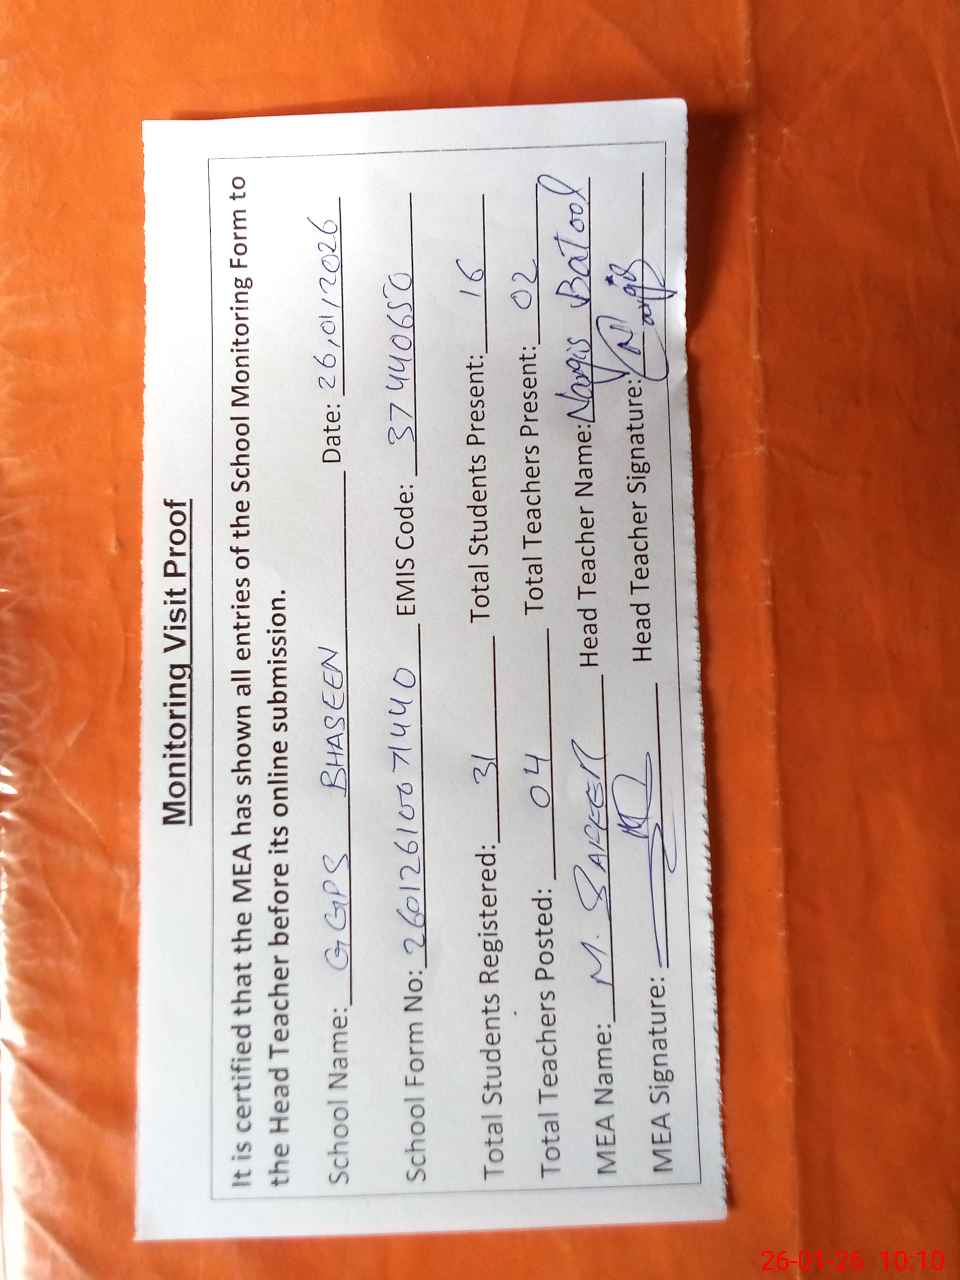 Monitoring Visit Proof
It is certified that the MEA has shown all entries of the School Monitoring Form to
the Head Teacher before its online submission.
School Name: GGPS BHASEEN Date: 26,01,2026
School Form No: 2601261007 1440 EMIS Code: 37440650
Total Students Registered: 31 Total Students Present: 16
Total Teachers Posted: 04 Total Teachers Present: 02
MEA Name: M. SAFEER Head Teacher Name: Nargis Batool
MEA Signature: Head Teacher Signature: Nargis
26-01-26 10:10